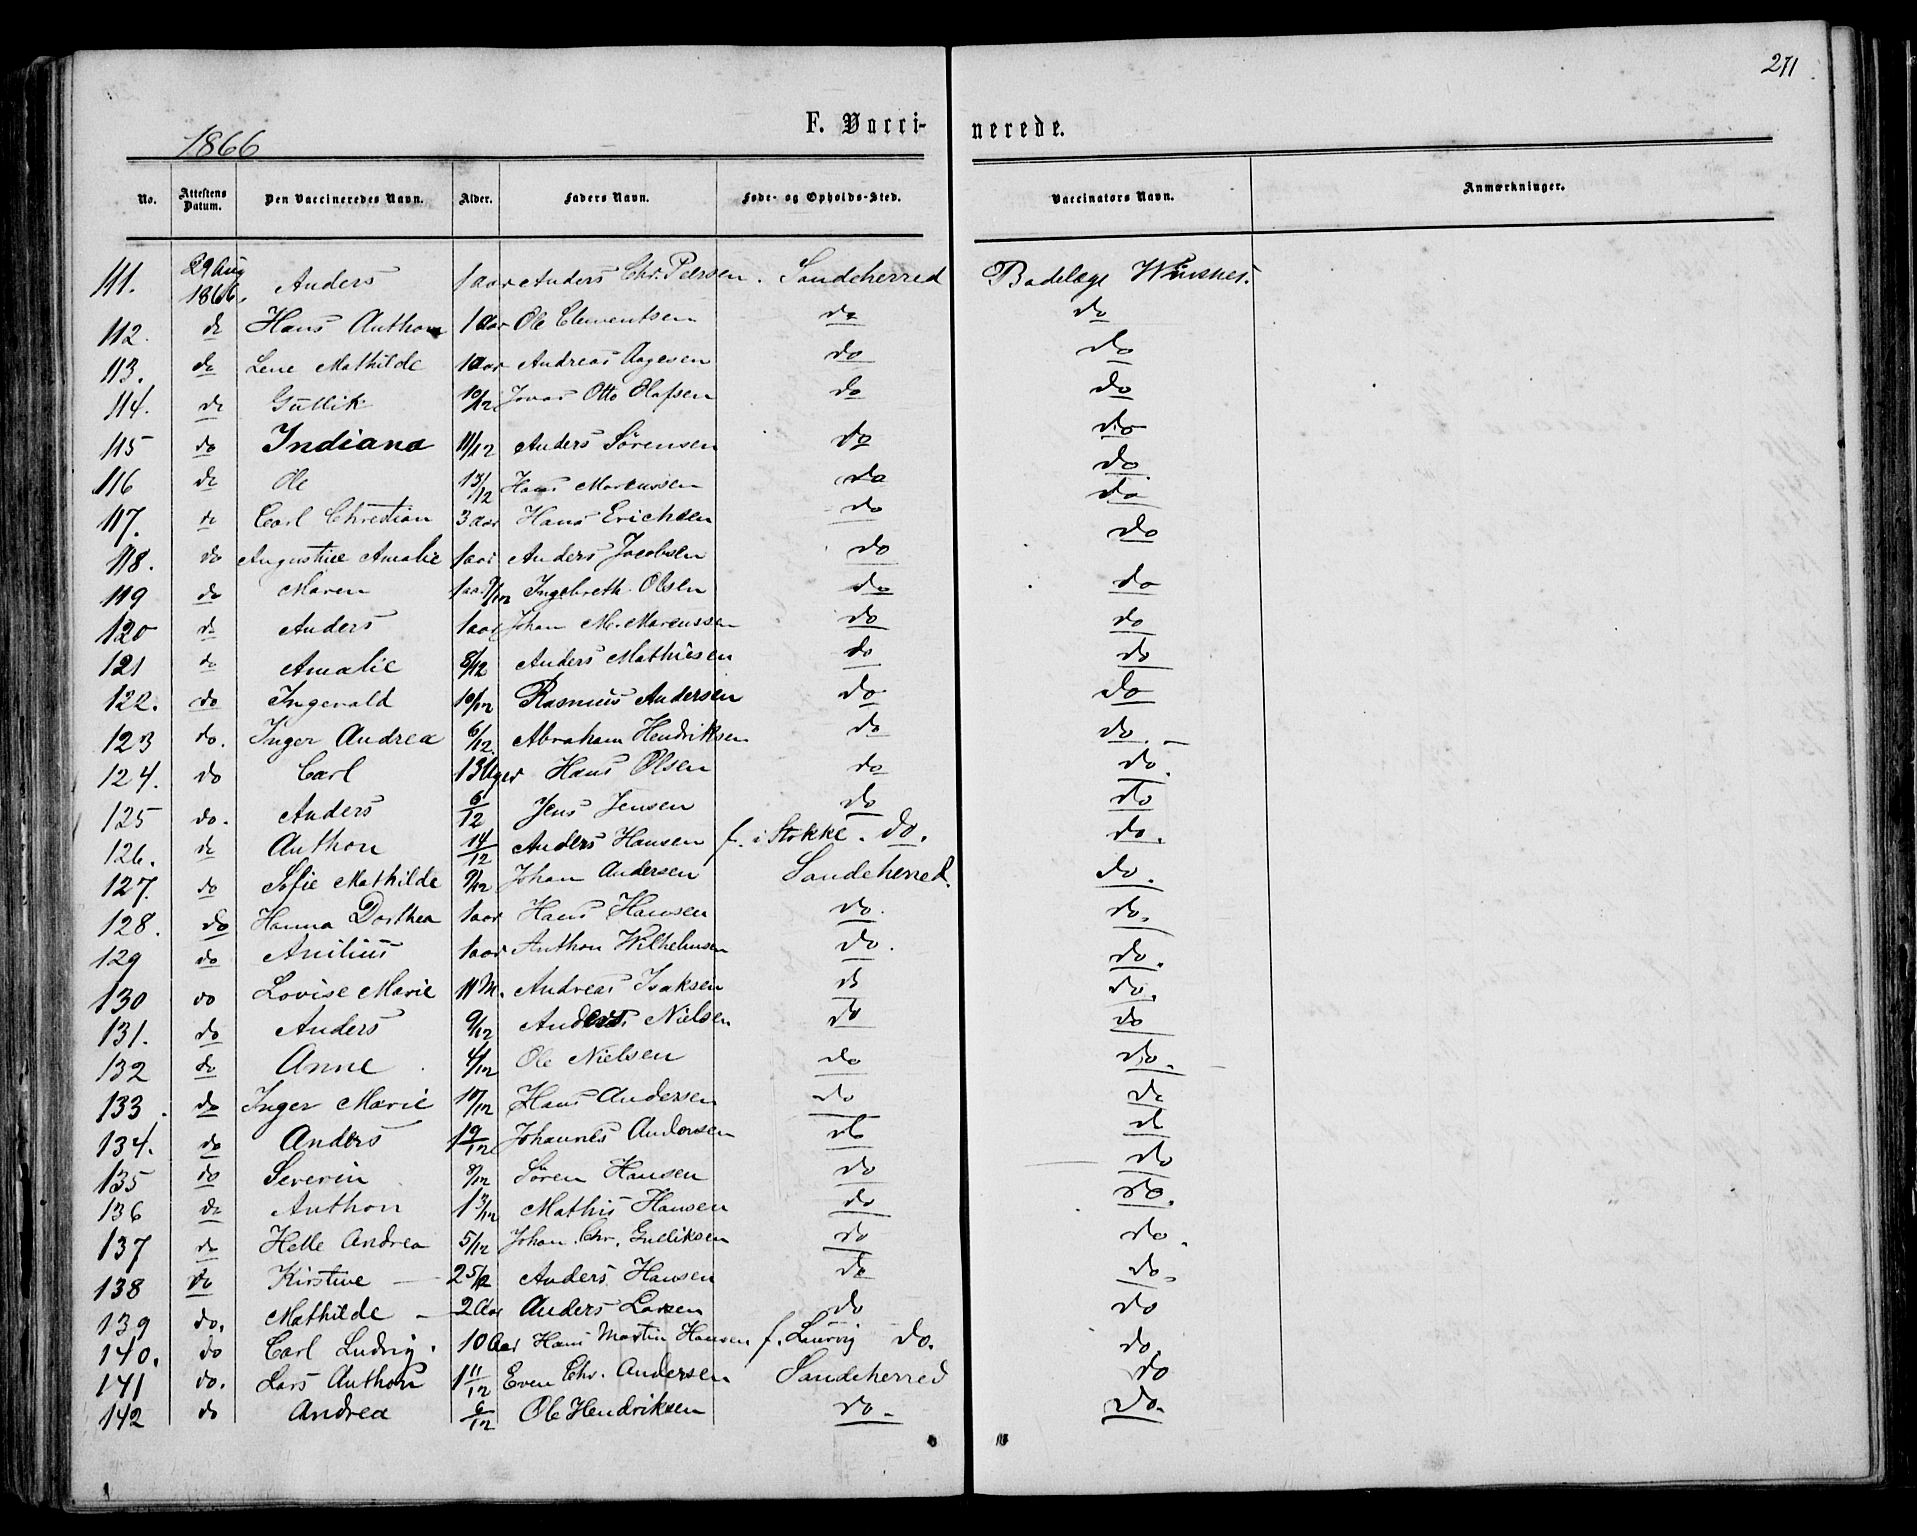 271
1866
F. Vacci- nerede.
No. Attestens Datum. Den Vaccineredes Navn. Alder. Faders Navn. Føde- og Opholds-Sted. Vaccinators Navn. Anmærkninger.
111. 29 Aug 1866. Anders 1 aar Anders Chr. Peersen. Sandeherred Badelæge
112. do Hans Anthon 1 aar Ole Clementsen do do
113. do Lene Mathilde 1 aar Andreas Aagesen do do
114. do Gullik 10/12 Jonas Otto Olafsen do do
115 do Indiana 11/12 Anders Sörensen do do
116 do Ole 13/12 Hans Marcussen do do
117. do Carl Christian 3 aar Hans Erichsen do do
118. do Augustine Amalie 1 aar Anders Jacobsen do do
119 do Maren 1 aar Ingebreth Olsen do do
120 do Anders 1 aar Johan M. Marcussen do do
121 do Amalie 8/12 Anders Mathisen do do
122. do Ingevald 10/12 Rasmus Andersen do do
123 do. Inger Andrea 6/12. Abraham Hendriksen do do.
124. do Carl 13 Uger Hans Olsen do do.
125 do. Anders 6/12 Jens Jensen do do
126. do Anthon 14/12 Anders Hansen f. i Stokke. do. do.
127. do Sofie Mathilde 9/12 Johan Andersen Sandeherred. do.
128. do Hanna Dorthea 1 aar Hans Hansen do. do.
129 do Anilius 1 aar Anthon Wilhelmsen do. do.
130 do Lovise Marie 11 M. Andreas Isaksen do do.
131. do Anders 9/12 Anders Nielsen do do
132 do Anne 4/12 Ole Nielsen do do.
133. do Inger Marie 10/12 Hans Andersen do do
134. do Anders 1 9/12 Johannes Andersen do do
135 do Severin 9/12 Sören Hansen do do
136 do Anthon 1 3/12 Mathis Hansen do do.
137 do Helle Andrea 5/12 Johan Chr. Gulliksen do do.
138 do Kirstine — 2 5/12 Anders Hansen do do.
139 do. Mathilde — 2 Aar Anders Larsen do do
140. do Carl Ludvig. 10 Aar Hans Martin Hansen f. Laurvig do. do.
141 do. Lars Anthon 1 11/12 Even Chr. Andersen Sandeherred do
142 do Andrea 6/12 Ole Hendriksen do. do.